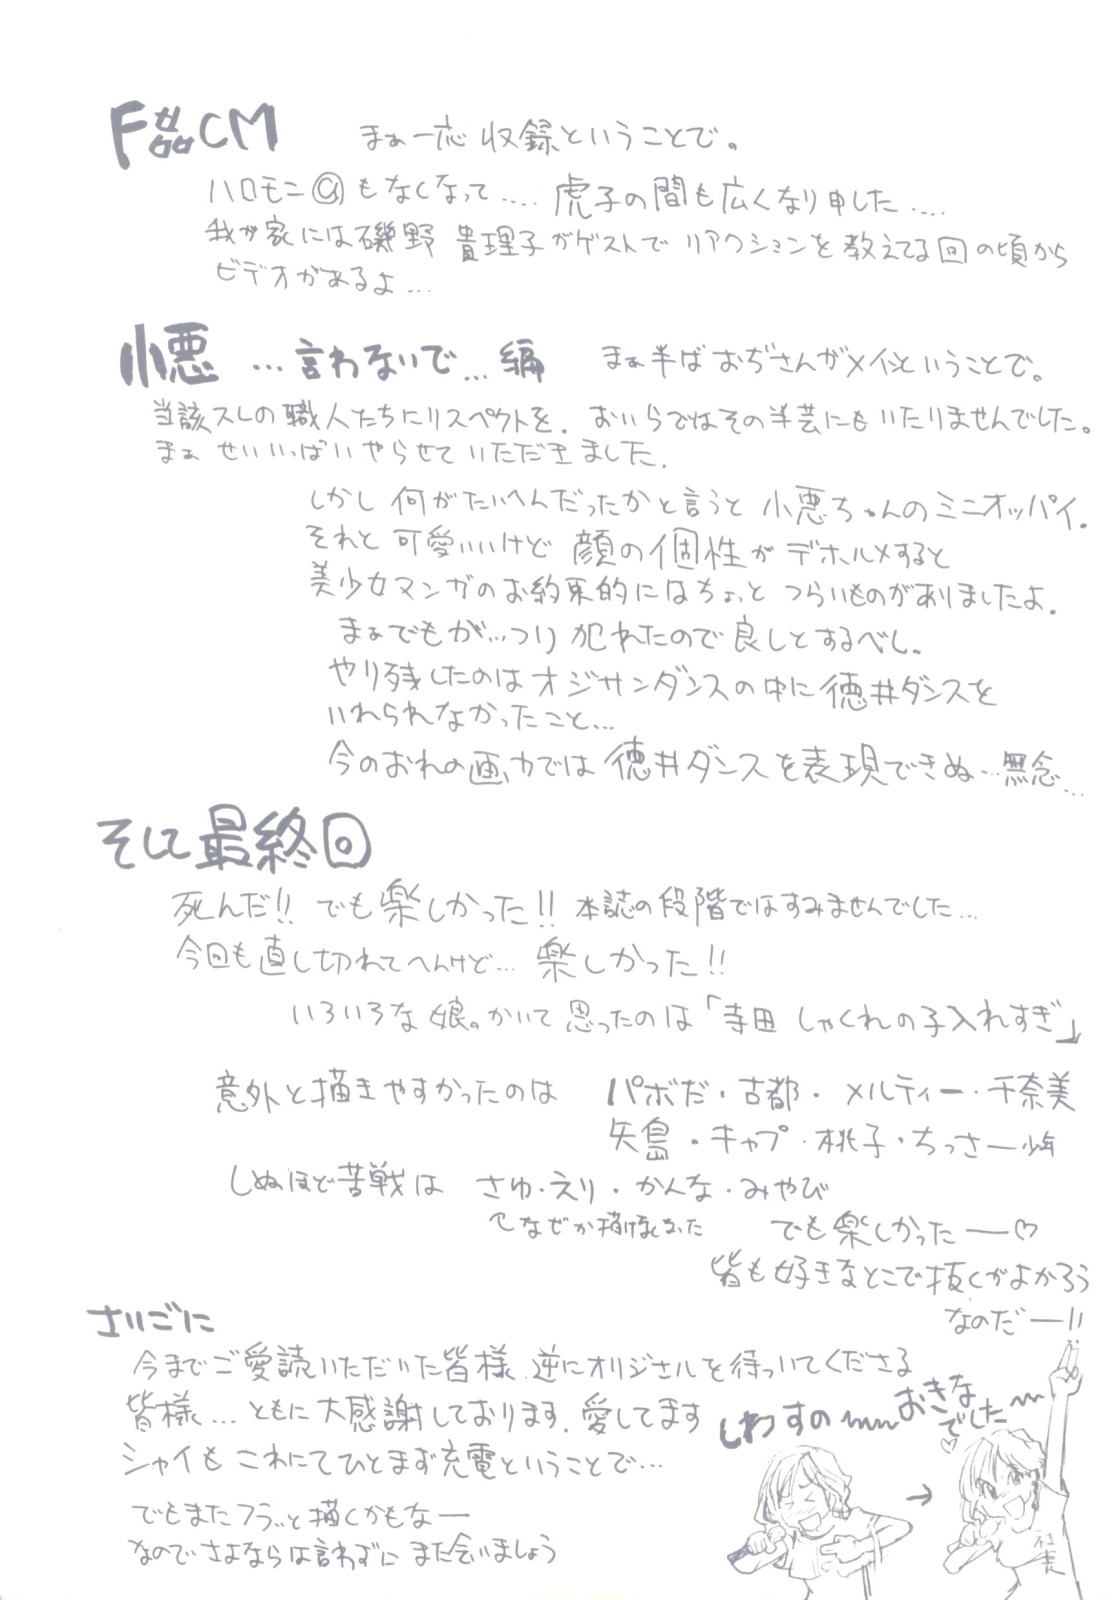 F CM まぁ一応 収録ということで。
ハロモニ@もなくなって.... 虎子の間も広くなり申した....
我が家には磯野 貴理子がゲストで リアクションを教えてる回の頃から
ビデオがあるよ...
小悪 ...言わないで...編 まぁ半ばおぢさんがメインということで。
当該スレの職人たちにリスペクトを. おいらではその半芸にもいたりませんでした。
まぁ せいいっぱいやらせていただきました.
しかし 何がたいへんだったかと言うと 小悪ちゃんのミニオッパイ.
それと 可愛いいけど 顔の個性がデホルメすると
美少女マンガのお約束的にはちょっと つらいものがありましたよ.
まぁでもが...つり 犯れたので良しとするべし。
やり残したのはオジサンダンスの中に徳井ダンスを
いれられなかったこと...
今のおれの画力では 徳井ダンスを表現できぬ...無念...
そして最終回
死んだ!! でも楽しかった!! 本誌の段階ではすみませんでした...
今回も直し切れてへんけど... 楽しかった!!
いろいろな娘。かいて思ったのは「寺田 しゃくれの子入れすぎ」
意外と描きやすかったのは パボだ・古都・メルティー・千奈美
矢島・キャプ・桃子・ちっさー少年
しぬほど苦戦は さゆ・えり・かんな・みやび
なぜか描けなかった でも楽しかったー♡
皆も好きなとこで抜くがよかろう
なのだー!!
さいごに
今までご愛読いただいた皆様 逆にオリジナルを待っいてくださる
皆様...ともに大感謝しております. 愛してます
シャイも これにてひとまず充電ということで...
でもまたフラッと描くかもなー
なのでさよならは言わずに また会いましょう
しわすの
おきな
でした